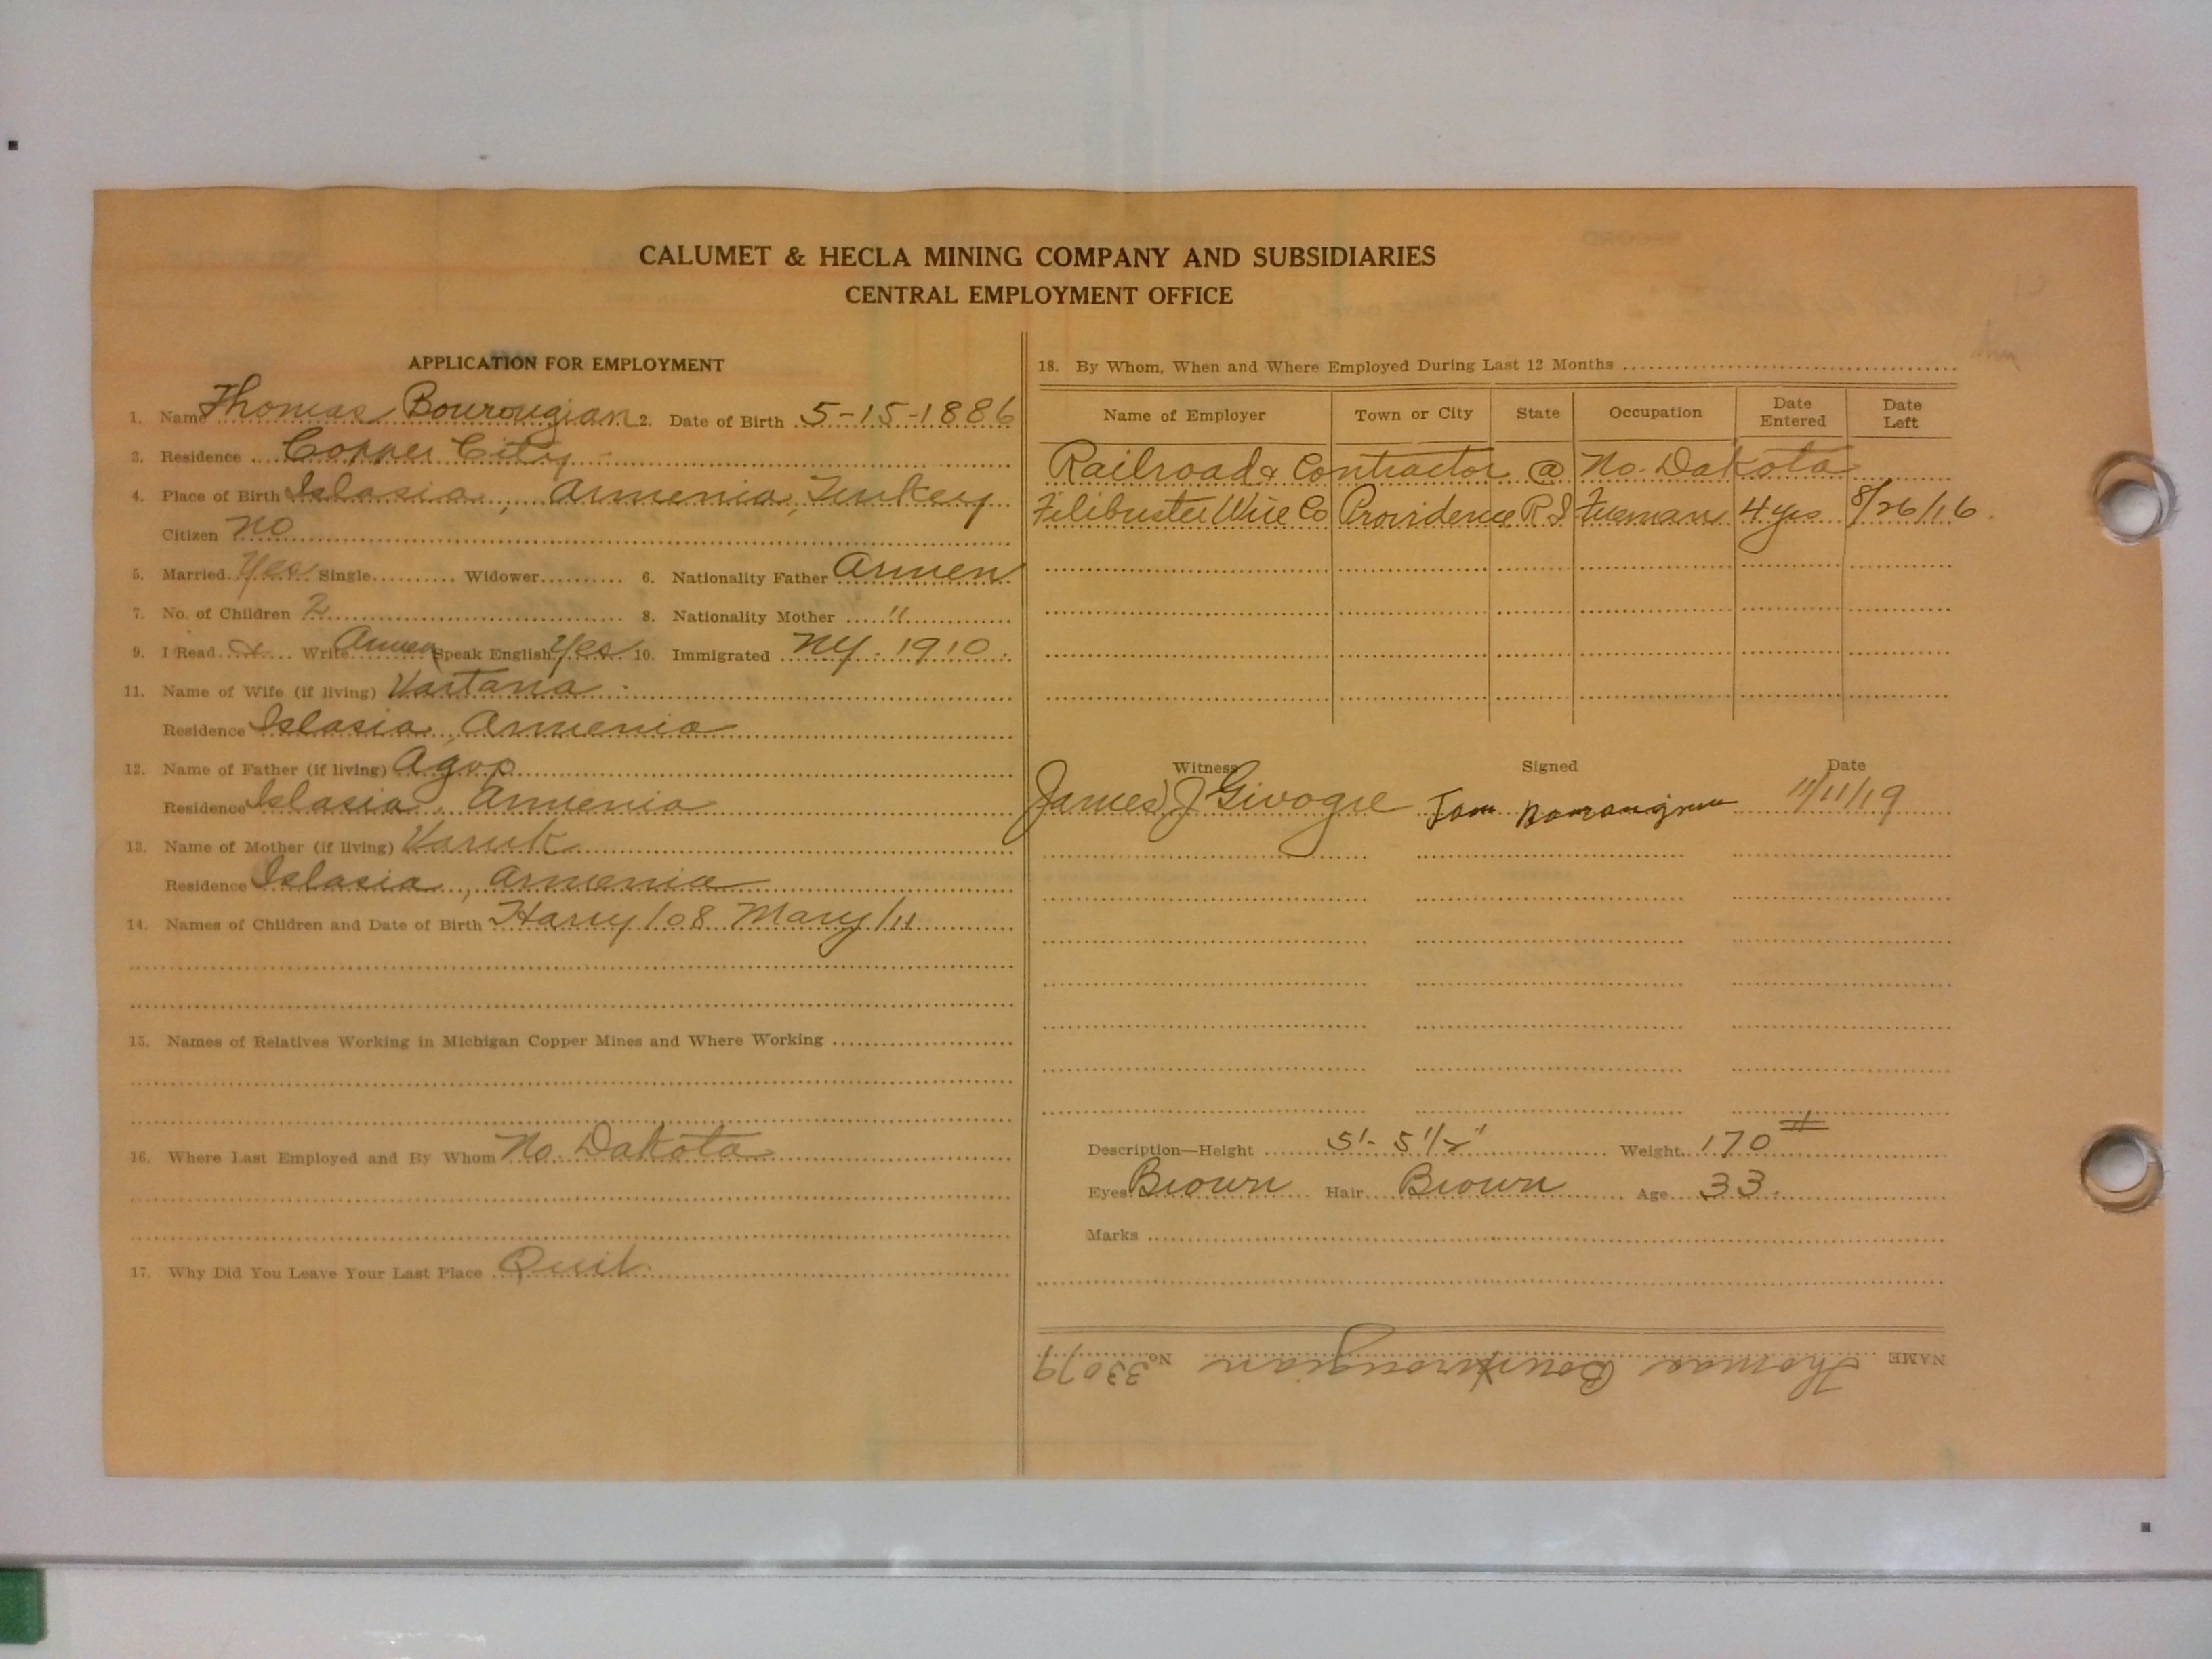 CALUMET & HECLA MINING COMPANY AND SUBSIDIARIES
CENTRAL EMPLOYMENT OFFICE
APPLICATION FOR EMPLOYMENT
1. Name Thomas Bourougian 2. Date of Birth 5-15-1886
3. Residence Copper City
4. Place of Birth Islasia, Armenia, Turkey
Citizen no
5. Married Yes Single Widower 6. Nationality Father Armen
7. No. of Children 2 8. Nationality Mother "
9. I Read & Write Armen Speak English Yes 10. Immigrated NY. 1910
11. Name of Wife (if living) Vartana
Residence Islasia, Armenia
12. Name of Father (if living) Agop
Residence Islasia, Armenia
13. Name of Mother (if living) Varuk
Residence Islasia, Armenia
14. Names of Children and Date of Birth Harry/08 Mary/11
15. Names of Relatives Working in Michigan Copper Mines and Where Working
16. Where Last Employed and By Whom No. Dakota
17. Why Did You Leave Your Last Place Quit
18. By Whom, When and Where Employed During Last 12 Months
Name of Employer Town or City State Occupation Date Entered Date Left
Railroad Contractor @ No. Dakota
Filibuster Wire Co Providence R I Fireman 4 yrs 8/26/16
Witness Signed Date
James J 11/11/19
Tom
Description—Height 5'- 5 1/2" Weight 170 #
Eyes Brown Hair Brown Age 33
Marks
NAME Thomas Bourougian No. 33079